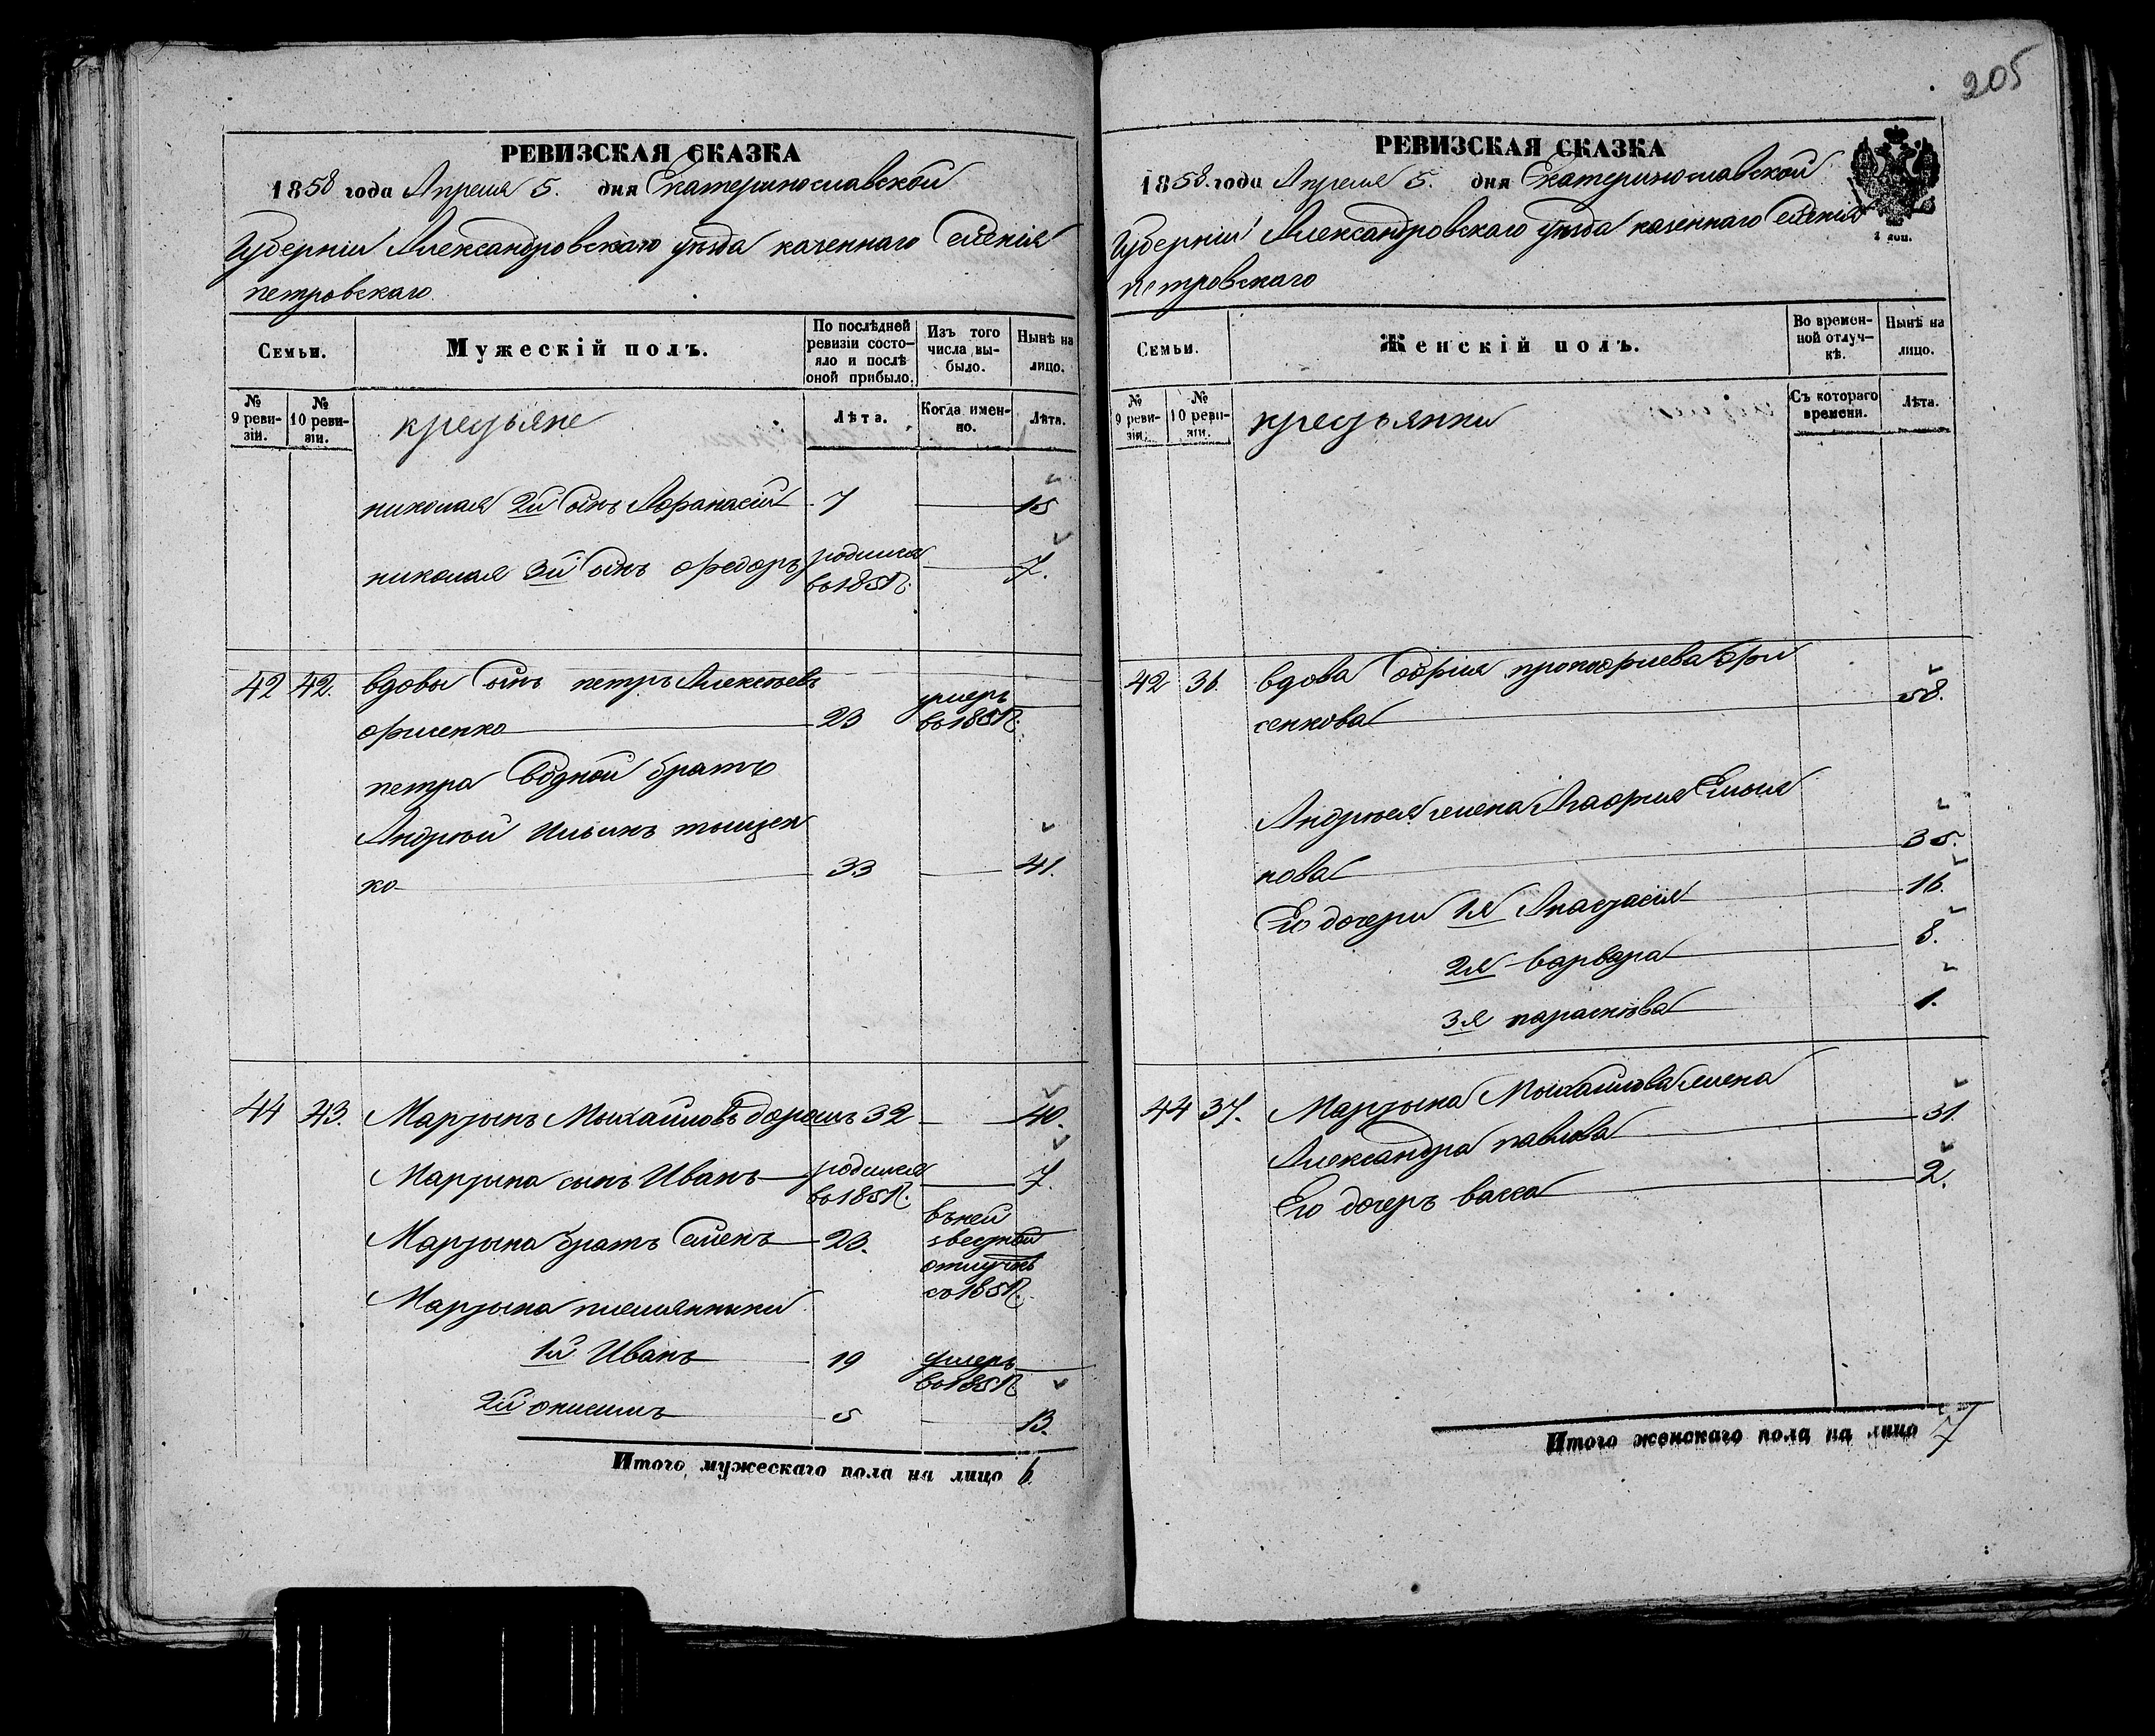 205
РЕВИЗСКАЯ СКАЗКА
1858 года Апреля 5. дня Екатеринославской
Губерніи Александровскаго уезда казеннаго селенія
петровскаго
Семьи.
Мужескій полъ.
По послѣдней ревизіи состояло и послѣ оной прибыло.
Изъ того числа выбыло.
Нынѣ на лицо.
№ 9 ревизіи.
№ 10 ревизіи.
крестьяне
Лѣта.
Когда именно.
Лѣта.
николая 2й сынъ Афанасий 7 15
николая 3й сынъ федоръ родился во 1851г. 7.
42 42. вдовы сынъ петръ Алексеевъ
фисенко 23 умеръ во 1851г.
петра сводной братъ
Андрей Ильинъ тыщен
ко 33 41.
44 43. Мартынъ Мыхайловъ дорошъ 32 40.
Мартына сынъ Иванъ родился во 1851г. 7.
Мартына братъ Семенъ 23. въ неи звестной отлучкѣ со 1851г.
Мартына племянныки
1й Иванъ 19 умеръ во 1851г.
2й онисимъ 5 13.
Итого мужескаго пола на лицо 6.
РЕВИЗСКАЯ СКАЗКА
1858. года Апреля 5. дня Екатеринославской
Губерніи Александровскаго уезда казеннаго селенія
петровскаго
2 коп.
Семьи.
Женскій полъ.
Во временной отлучкѣ.
Нынѣ на лицо.
№ 9 ревизіи.
№ 10 ревизіи.
крестьянки
Съ котораго времени.
Лѣта.
42 36. вдова София прокофиева фи
сенкова 58.
Андрея жена Агафия Емеля
нова 35.
Его дочери 1я Анастасия 16.
2я варвара 8.
3я параскева 1.
44 37. Мартына Мыхайлова жена
Александра павлова 31.
Его дочеръ васса 2.
Итого женскаго пола на лицо 7